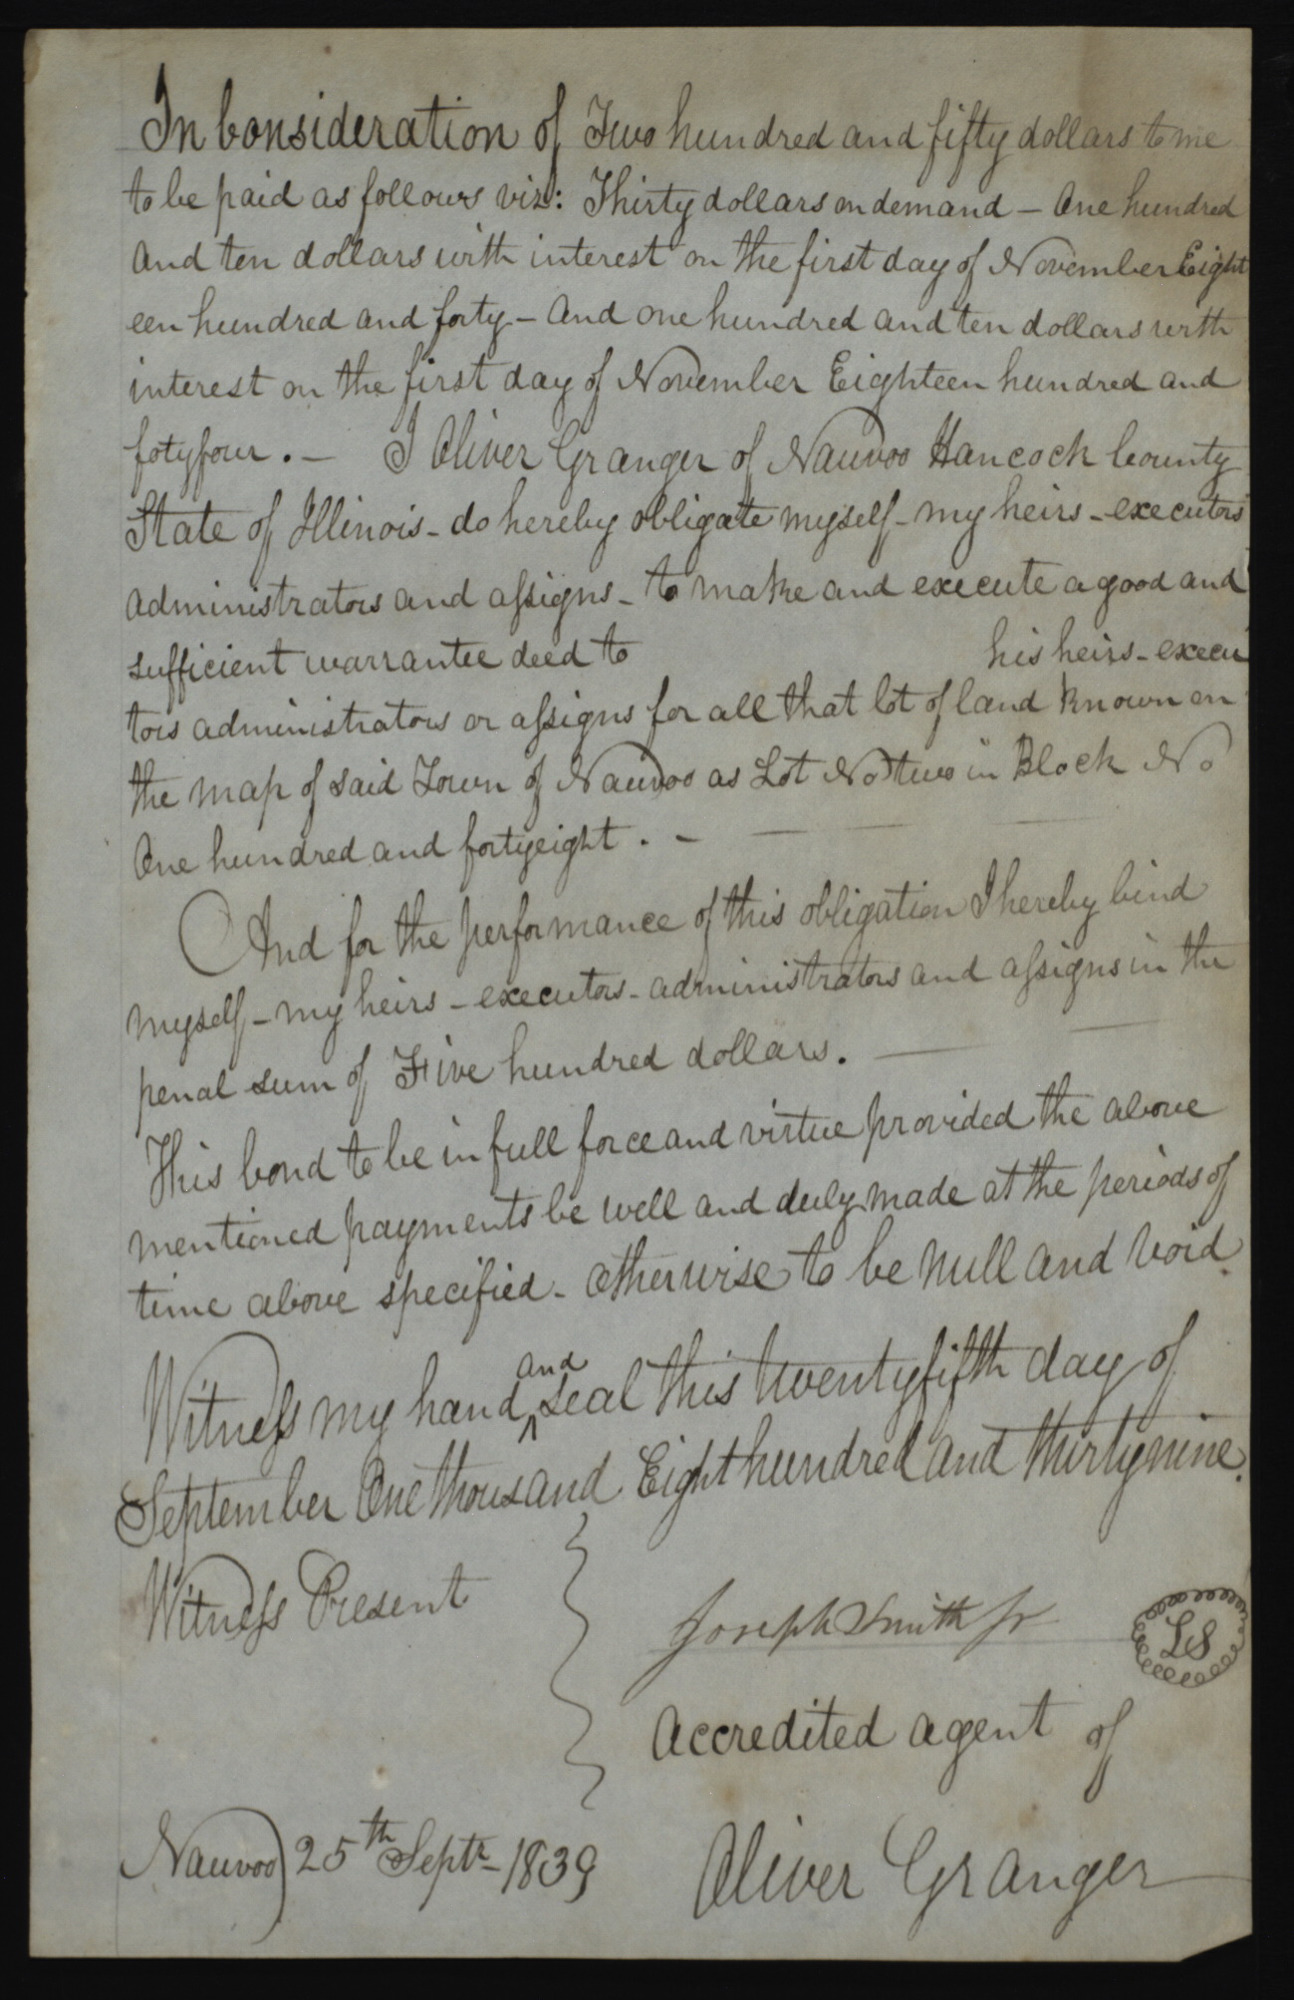 In Consideration of Two hundred and fifty dollars to me
to be paid as follows viz: Thirty dollars on demand – One hundred
and ten dollars with interest on the first day of November Eight
een hundred and forty – and one hundred and ten dollars with
interest on the first day of November Eighteen hundred and
fotyfour. – I Oliver Granger of Nauvoo Hancock County
State of Illinois – do hereby obligate myself – my heirs – executors
administrators and assigns – to make and execute a good and
sufficient warrantee deed to his heirs – execu
tors administrators or assigns for all that lot of land known on
the map of said Town of Nauvoo as Lot No two in Block No
One hundred and fortyeight. –
And for the performance of this obligation I hereby bind
myself – my heirs – executors – administrators and assigns in the
penal sum of Five hundred dollars.
This bond to be in full force and virtue provided the above
mentioned payments be well and duly made at the periods of
time above specified – otherwise to be null and void.
Witness my hand and seal this twentyfifth day of
September One thousand Eight hundred and thirtynine.
Witness Present
Joseph Smith Jr
LS
Accredited agent of
Nauvoo) 25th Septr – 1839
Oliver Granger